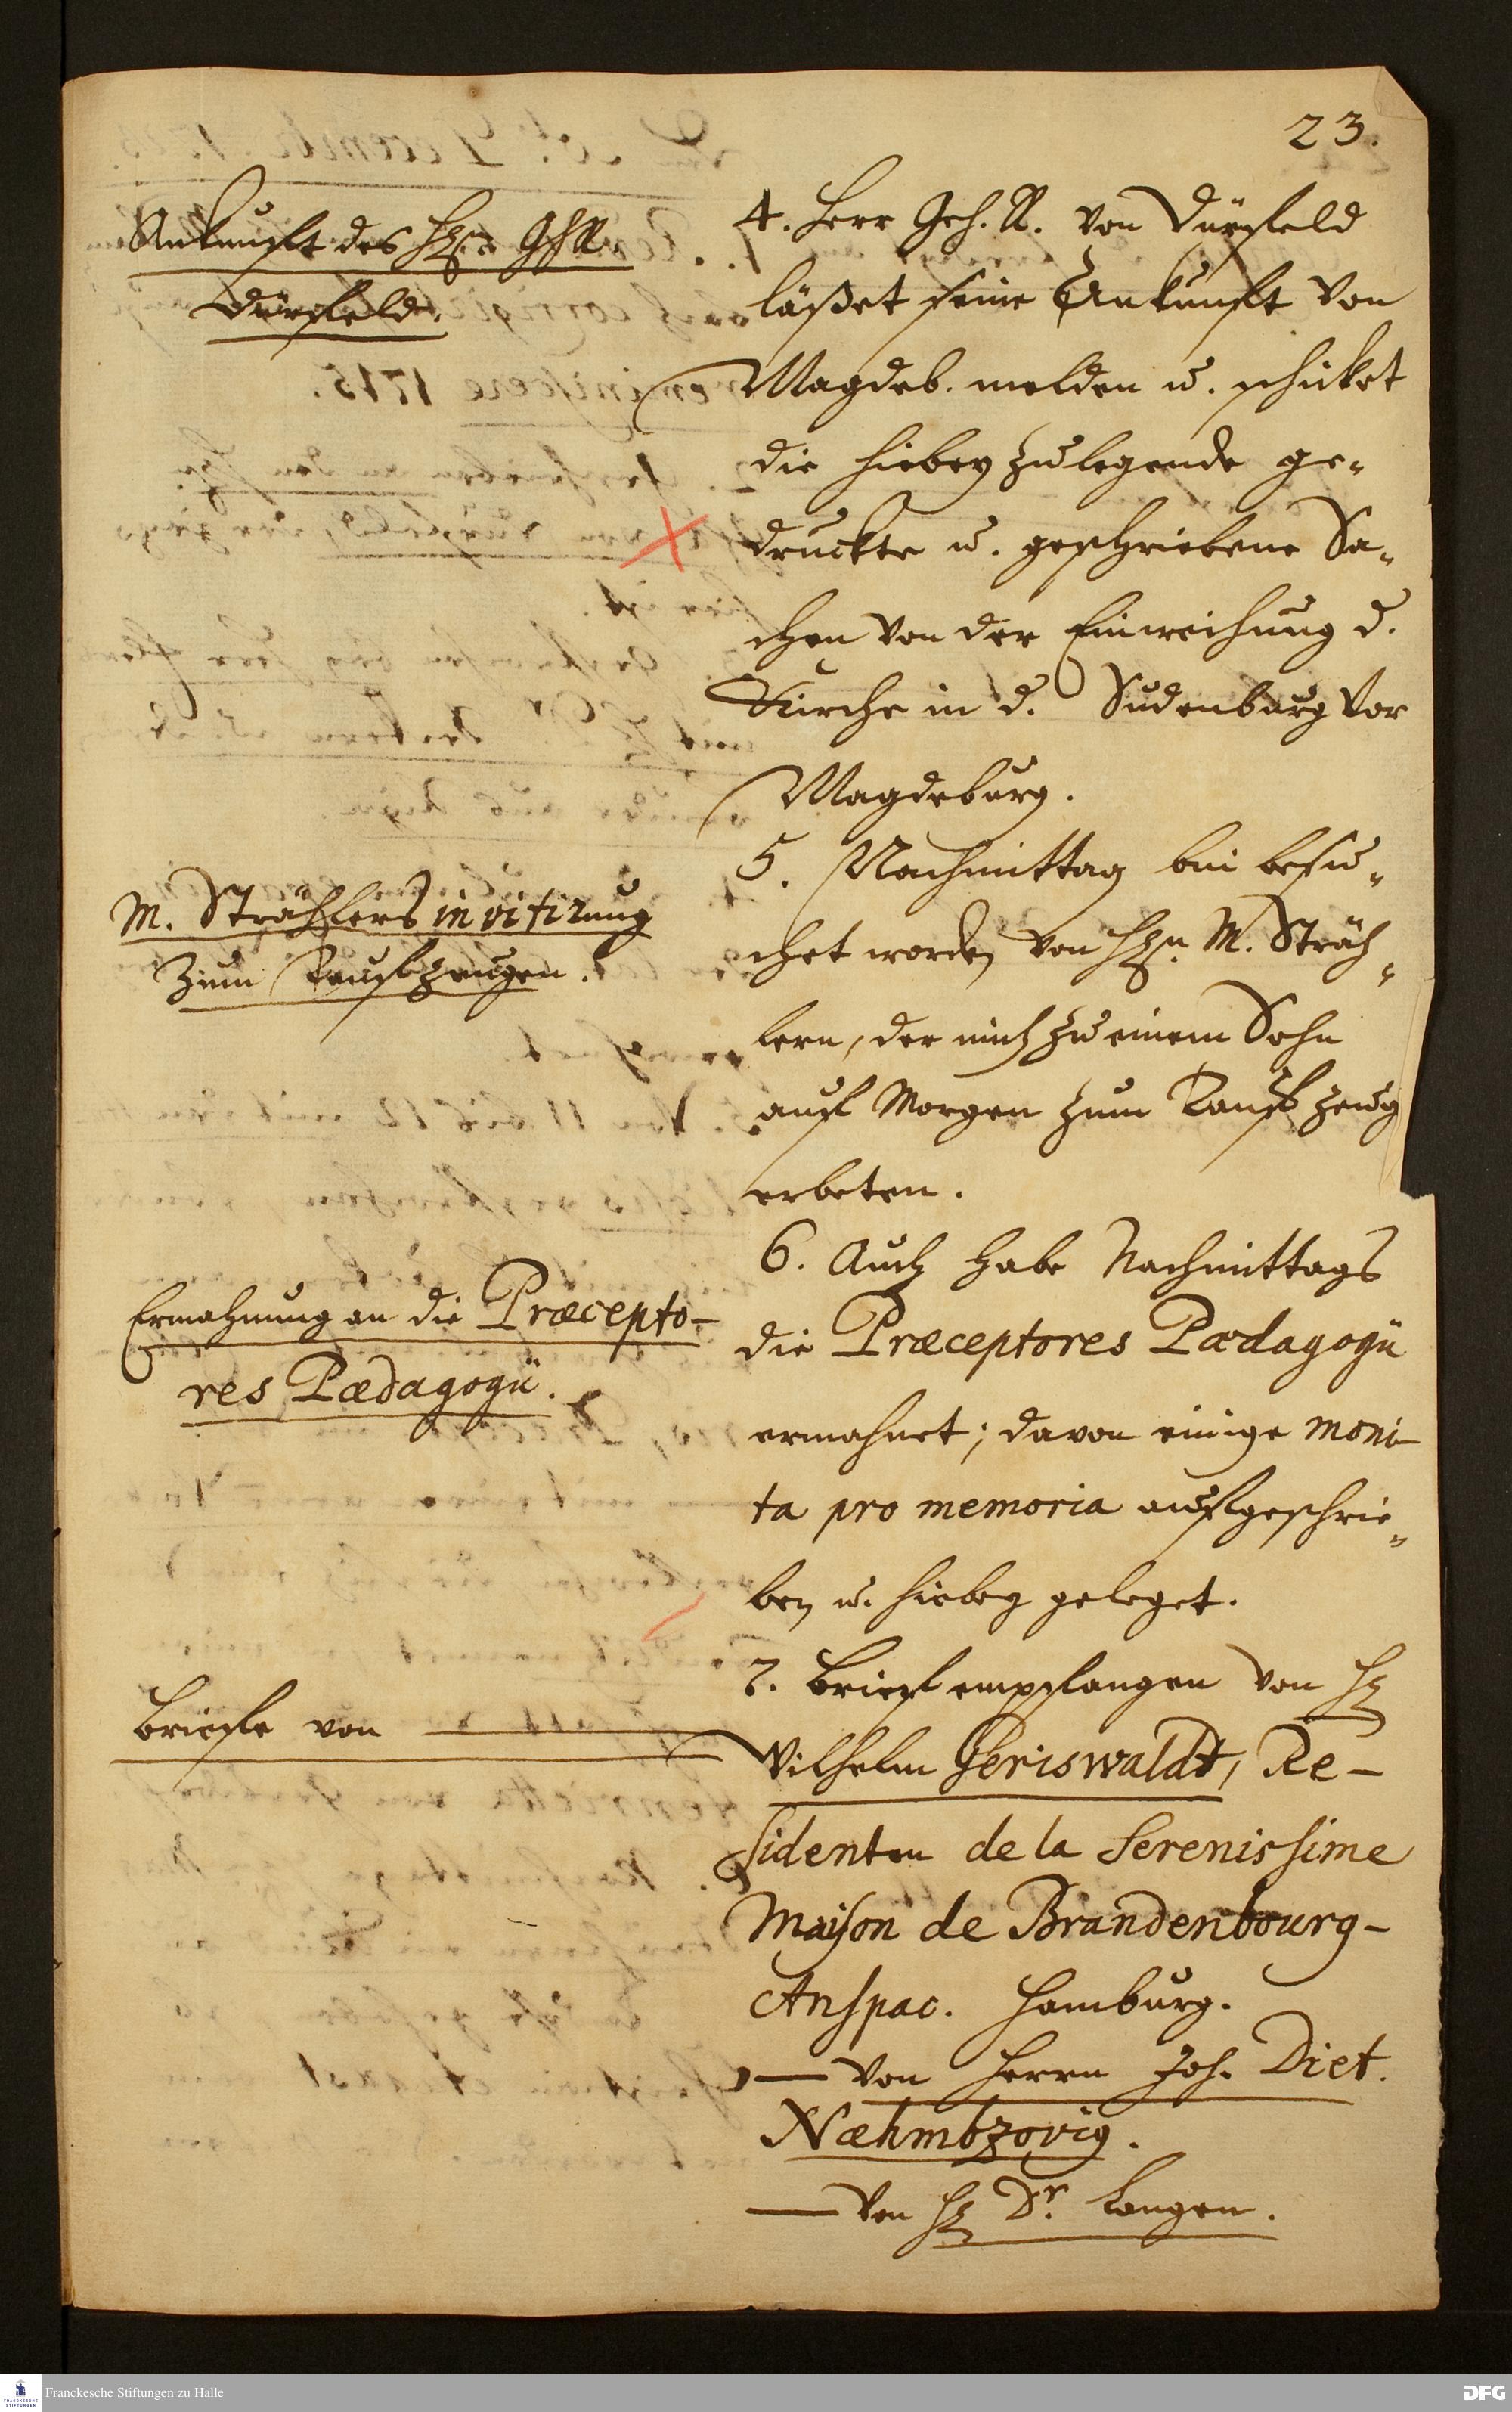 23.
Ankunft des Hrn. GhR
Dürfeld.
4. Herr Geh. R. von Dürfeld
läßet seine Ankunft von
Magdeb. melden u. schicket
die hiebey zulegende ge-
druckte u. geschriebene Sa-
chen von der Einweihung d.
Kirche in d. Sudenburg vor
Magdeburg.
M. Strählers invitirung
zum Taufzeugen.
5. Nachmittag bin besu-
chet worden von Hrn. M. Sträh-
lern, der mich zu einem Sohn
auf Morgen zum Taufzeug
erbeten.
Ermahnung an die Præcepto-
res Pædagogii.
6. Auch habe Nachmittags
die Præceptores Pædagogii
ermahnet; davon einige moni-
ta pro memoria aufgeschrie-
ben u. hiebey geleget.
Briefe von
7. Brief empfangen von H.
Wilhelm Geriswaldt, Re-
sidenten de la Serenissime
Maison de Brandenbourg-
Anspac. Hamburg.
— von Herrn Joh. Diet.
Næhmbzovig.
— von H. Dr. Langen.
Franckesche Stiftungen zu Halle
DFG